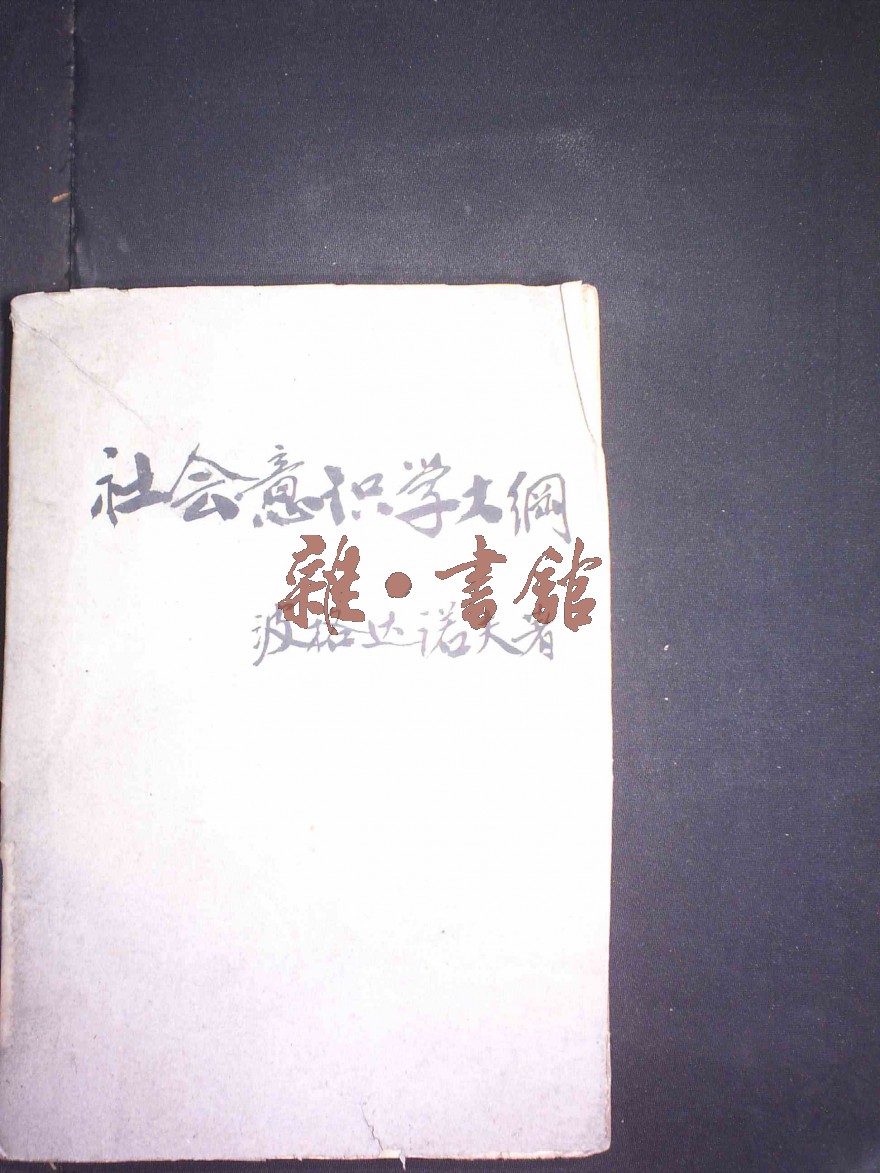 社会意识学大綱
雜·書館
波格达诺夫著